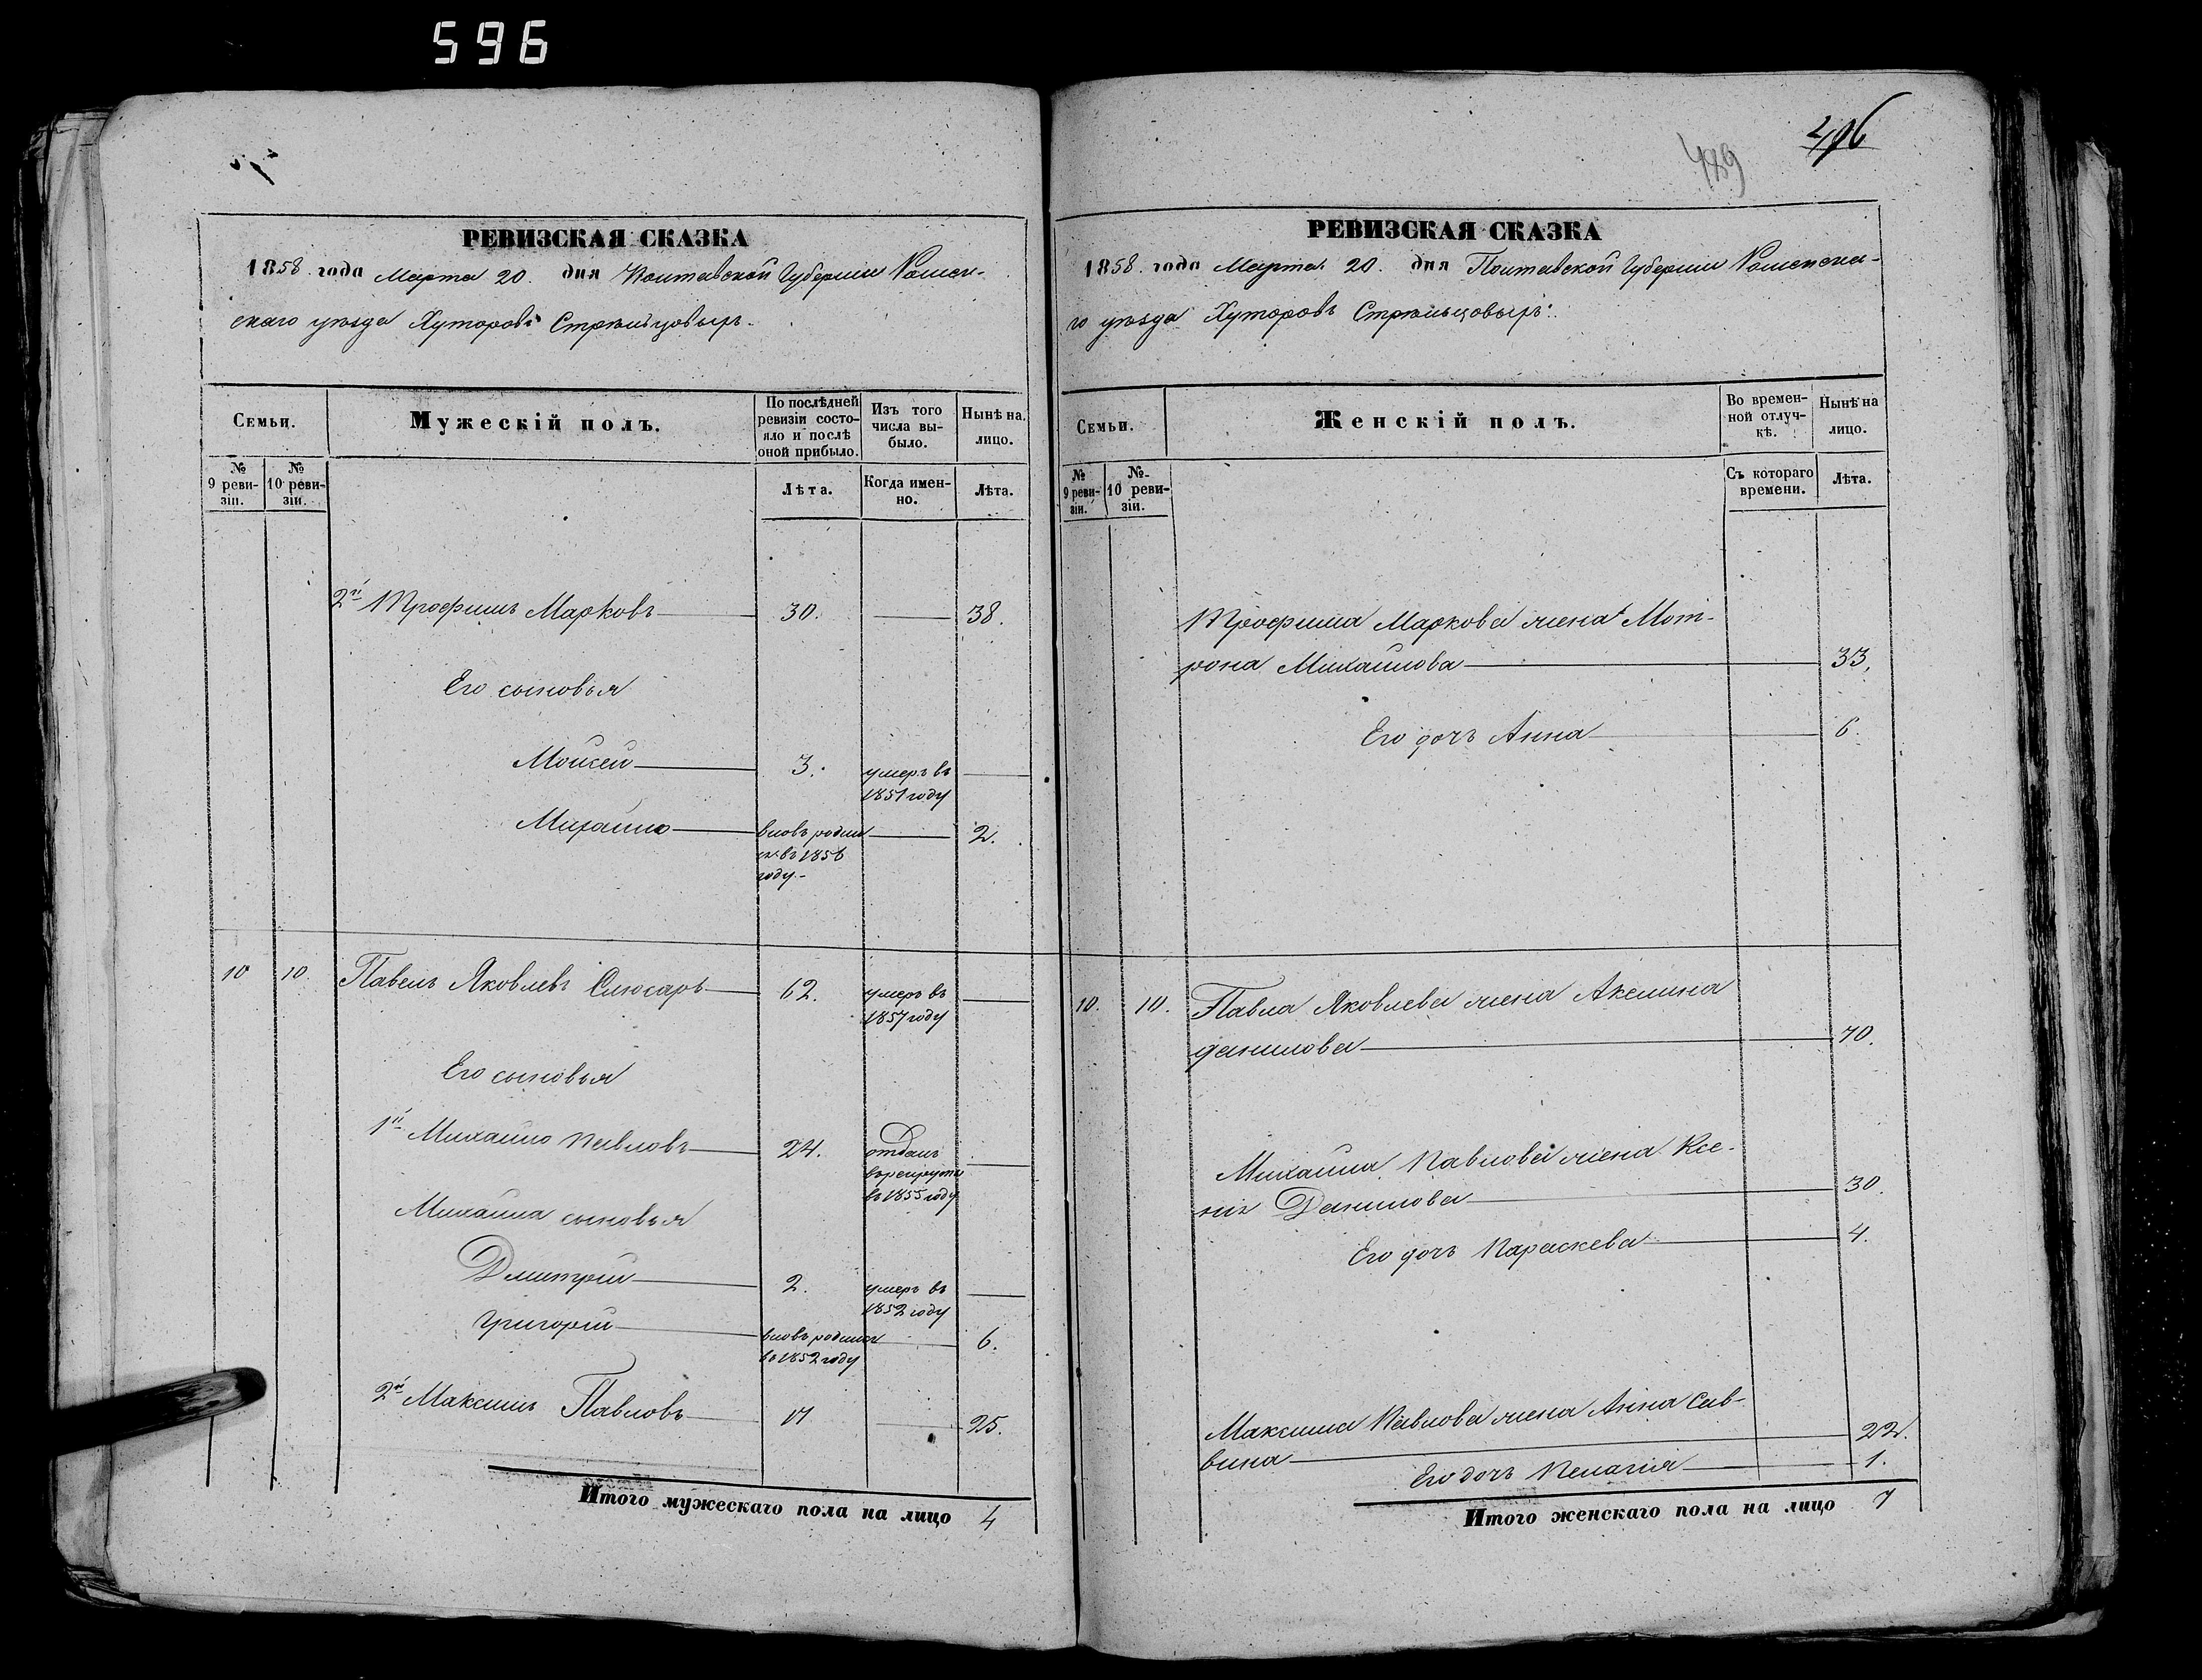 596
496
489
РЕВИЗСКАЯ СКАЗКА
1858 года Марта 20. дня Полтавской Губерніи Ромен-
скаго уѣзда Хуторовъ Стрѣльцовыхъ.
Семьи.
Мужескій полъ.
По послѣдней
ревизіи состо-
яло и послѣ
оной прибыло.
Изъ того
числа вы-
было.
Нынѣ на
лицо.
№
9 реви-
зіи.
№
10 реви-
зіи.
Лѣта.
Когда имен-
но.
Лѣта.
2й Трофимъ Марковъ 30. 38.
Его сыновья
Мойсей 3. умеръ въ
1851 году
Михайло вновь родил 2.
ся въ 1856
году.
10 10. Павелъ Яковлевъ Слюсарь 62. умеръ въ
1857 году
Его сыновья
1й Михайло Павловъ 24. отданъ
въ рекруты
въ 1855 году
Михайла сыновья
Дмитрій 2. умеръ въ
1852 году
Григорій вновь родился 6.
въ 1852 году
2й Максимъ Павловъ 17 25.
Итого мужескаго пола на лицо 4
РЕВИЗСКАЯ СКАЗКА
1858. года Марта 20. дня Полтавской Губерніи Роменска-
го уѣзда Хуторовъ Стрѣльцовыхъ.
Семьи.
Женскій полъ.
Во времен-
ной отлуч-
кѣ.
Нынѣ на
лицо.
№
9 реви-
зіи.
№
10 реви-
зіи.
Съ котораго
времени.
Лѣта.
Трофима Маркова жена Мот-
рона Михайлова 33.
Его дочь Анна 6.
10. 10. Павла Яковлева жена Аксинна
данилова 70.
Михайла Павлова жена Ксе-
нія Данилова 30.
Его дочь Параскева 4.
Максима Павлова жена Анна Сав-
вина 22.
Его дочь Пелагія 1.
Итого женскаго пола на лицо 7